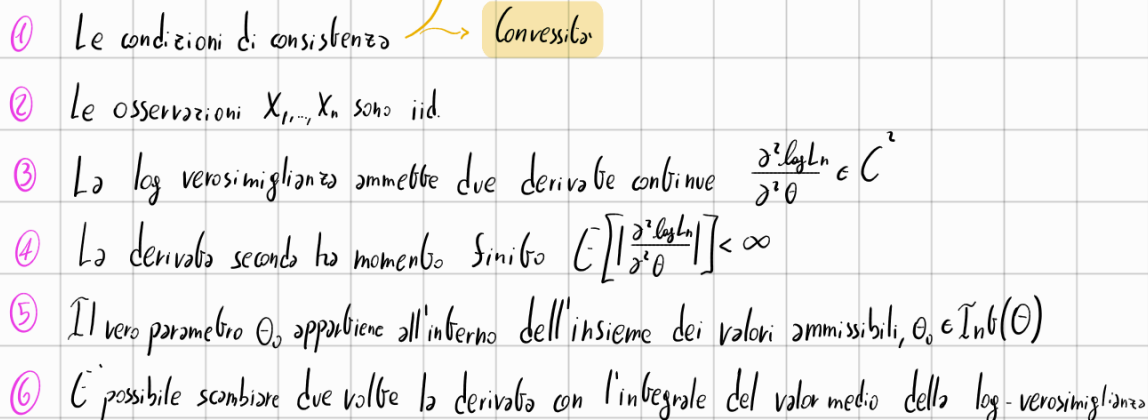 ① Le condizioni di consistenza → Convessità
② Le osservazioni X₁,..., Xₙ sono iid.
③ La log verosimiglianza ammette due derivate continue ∂² log Lₙ / ∂²θ ∈ C²
④ La derivata seconda ha momento finito E[|∂² log Lₙ / ∂²θ|] < ∞
⑤ Il vero parametro θ₀ appartiene all'interno dell'insieme dei valori ammissibili, θ₀ ∈ Int(Θ)
⑥ E' possibile scambiare due volte la derivata con l'integrale del valor medio della log-verosimiglianza